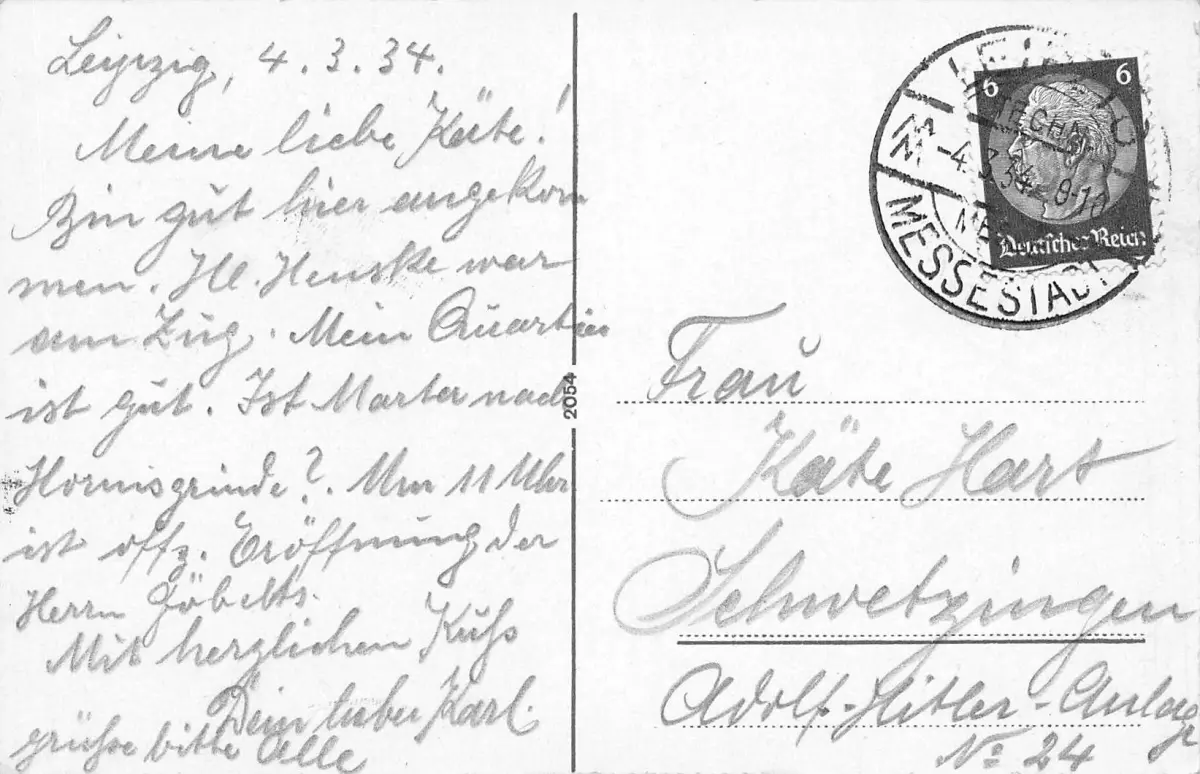 Leipzig, 4.3.34.
Meine liebe Käte!
Bin gut hier angekom
men. Hl. Henske war
am Zug. Mein Quartier
ist gut. Ist Marta nach
Hornisgrinde?. Um 11 Uhr
ist offz. Eröffnung der
Herrn Göbells.
Mit herzlichen Kuß
Dein lieber Karl.
grüße bitte Alle
2054
6 6
Deutsches Reich
MESSESTADT
Frau
Käte Hart
Schwetzingen
Adolf-Hitler-Anlage
No 24